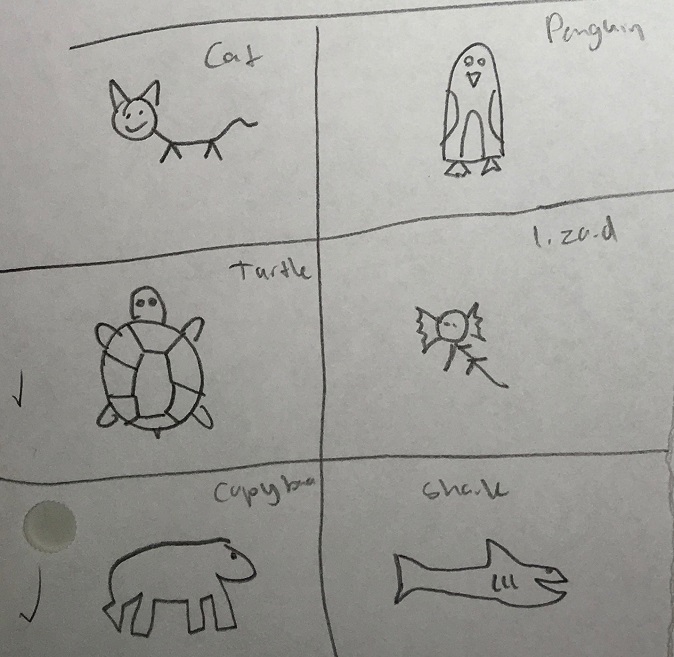 Cat
Penguin
Turtle
Lizard
Capybara
Shark